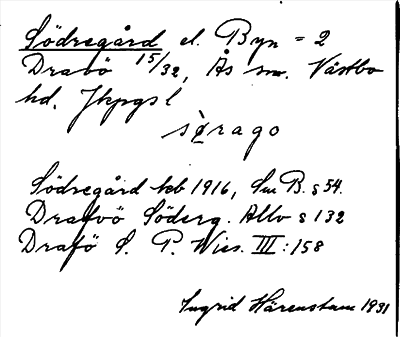 Södregård el. Byn = 2
Drafö 15/32, Ås sn. Västbo
hd. Jkpgs l
sö̀rago
Södregård kb 1916, Sm B. s 54.
Drafvö Söderg. Allv s 132
Drafö S. P. Wies. III:158
Ingrid Härenstam 1931